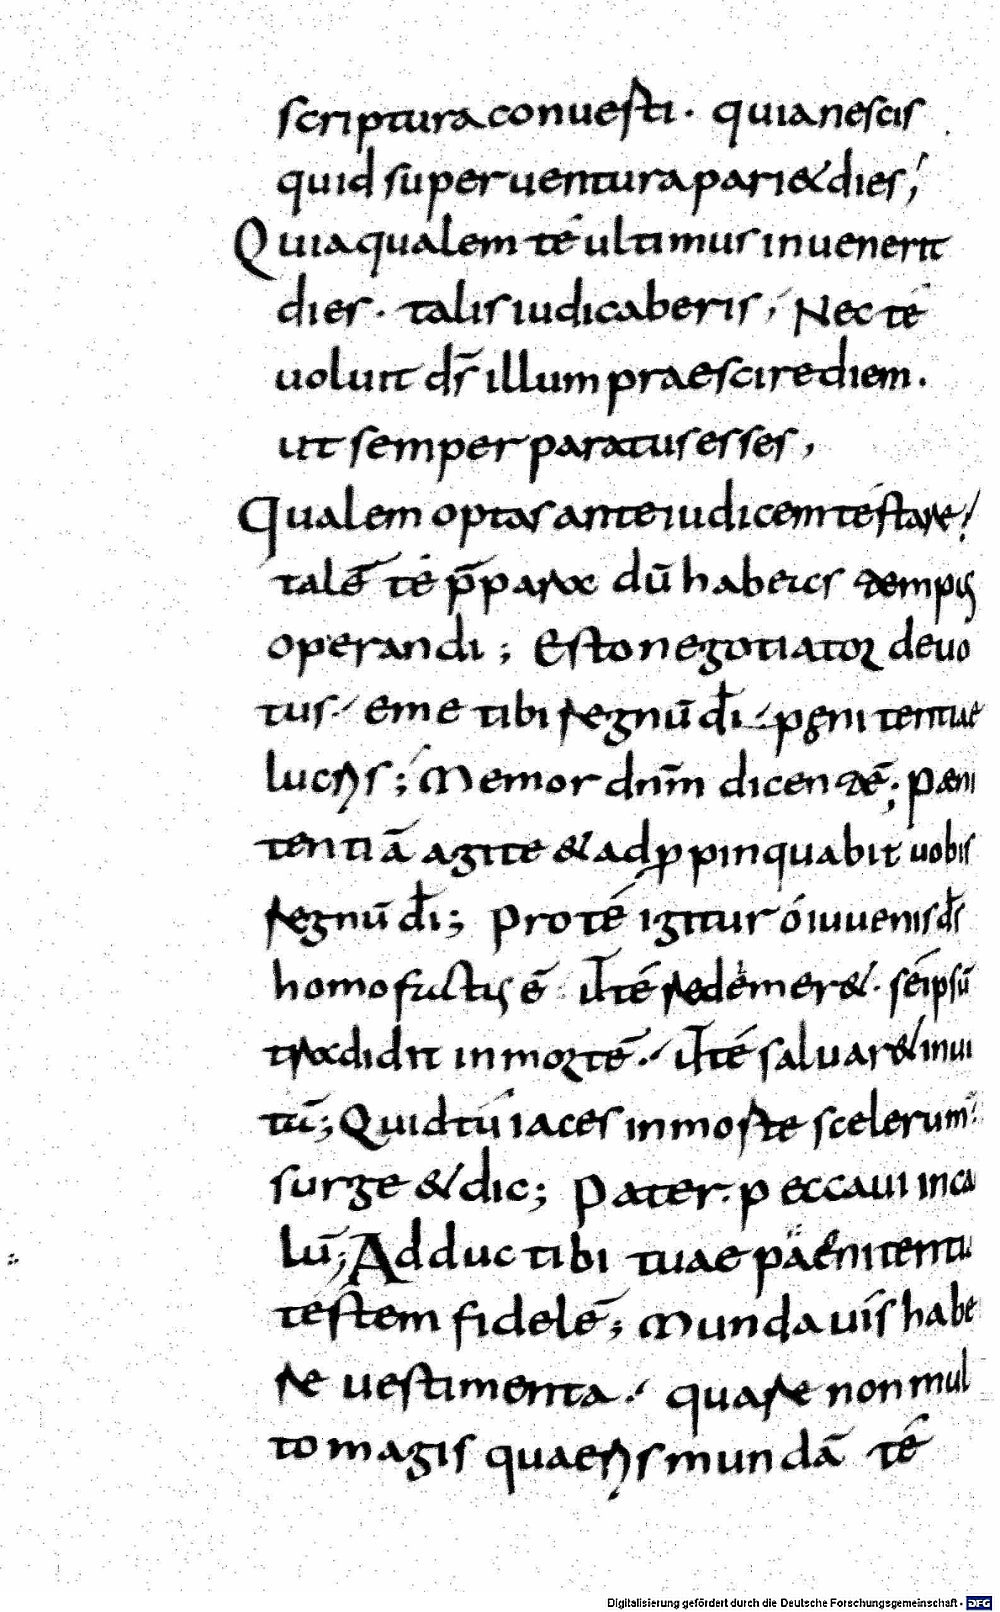 scriptura conuerti · quia nescis
quid superuentura pari& dies;
Quia qualem té ultimus inuenerit
dies · talis iudicaberis; Nec té
uoluit d̄s illum praescire diem ·
ut semper paratus esses,
Qualem optas ante iudicem té stare;
talē té p̄para dū habeas tempus
operandi; Esto negotiator deuo
tus · eme tibi regnū d̄i · penitentiae
lucris; Memor dn̄m dicentē; paeni
tentiā agite & adpropinquabit uobis
regnū d̄i; Pro té igitur ó iuuenis d̄s
homo factus ē ut té redemer& · seipsū
tradidit in mortē · ut té saluar& inui
tū; Quid tú iaces in morte scelerum
surge & dic; Pater · peccaui in cae
lū; Adduc tibi tuae paenitentiae
testem fidelē; Munda uís habe
re uestimenta · quare non mul
to magis quaeris mundā té
Digitalisierung gefördert durch die Deutsche Forschungsgemeinschaft · DFG